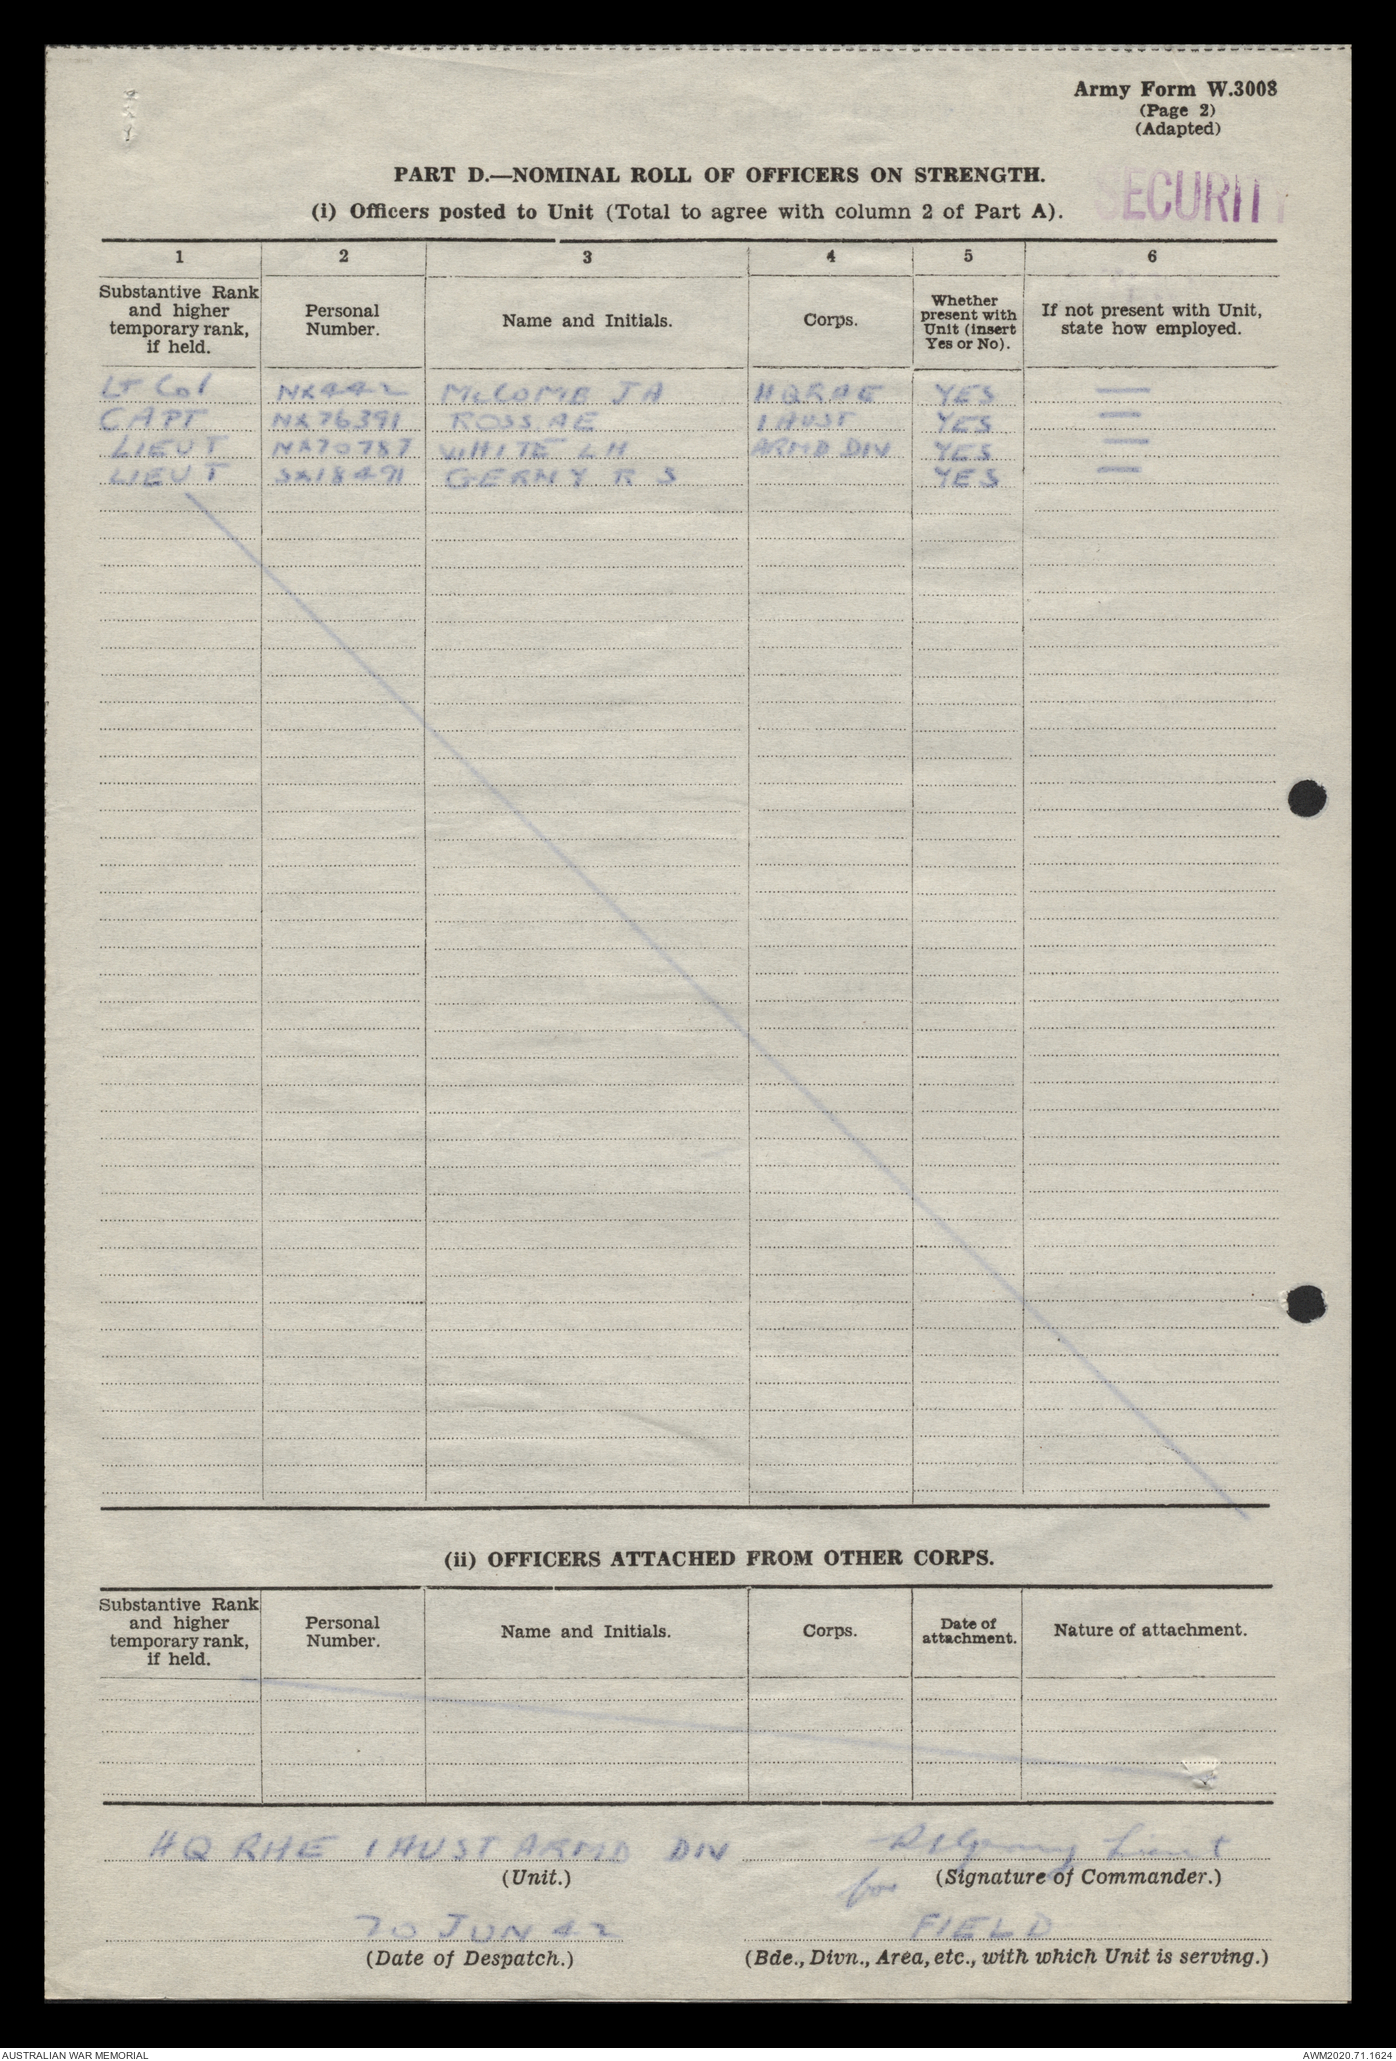 Army Form W.3008
(Page 2)
(Adapted)
PART D.—NOMINAL ROLL OF OFFICERS ON STRENGTH.
SECURITY
(i) Officers posted to Unit (Total to agree with column 2 of Part A).
1 2 3 4 5 6
Substantive Rank and higher temporary rank, if held. Personal Number. Name and Initials. Corps. Whether present with Unit (insert Yes or No). If not present with Unit, state how employed.
Lt Col NX442 McCOMB JA HQRAE YES —
CAPT NX76391 ROSS AE 1 AUST YES —
LIEUT NX70787 WHITE LH ARMD DIV YES —
LIEUT SX18491 GERNY R S YES —
(ii) OFFICERS ATTACHED FROM OTHER CORPS.
Substantive Rank and higher temporary rank, if held. Personal Number. Name and Initials. Corps. Date of attachment. Nature of attachment.
HQ RAE 1 AUST ARMD DIV Lieut
(Unit.) for (Signature of Commander.)
JUN 42 FIELD
(Date of Despatch.) (Bde., Divn., Area, etc., with which Unit is serving.)
AUSTRALIAN WAR MEMORIAL AWM2020.71.1624